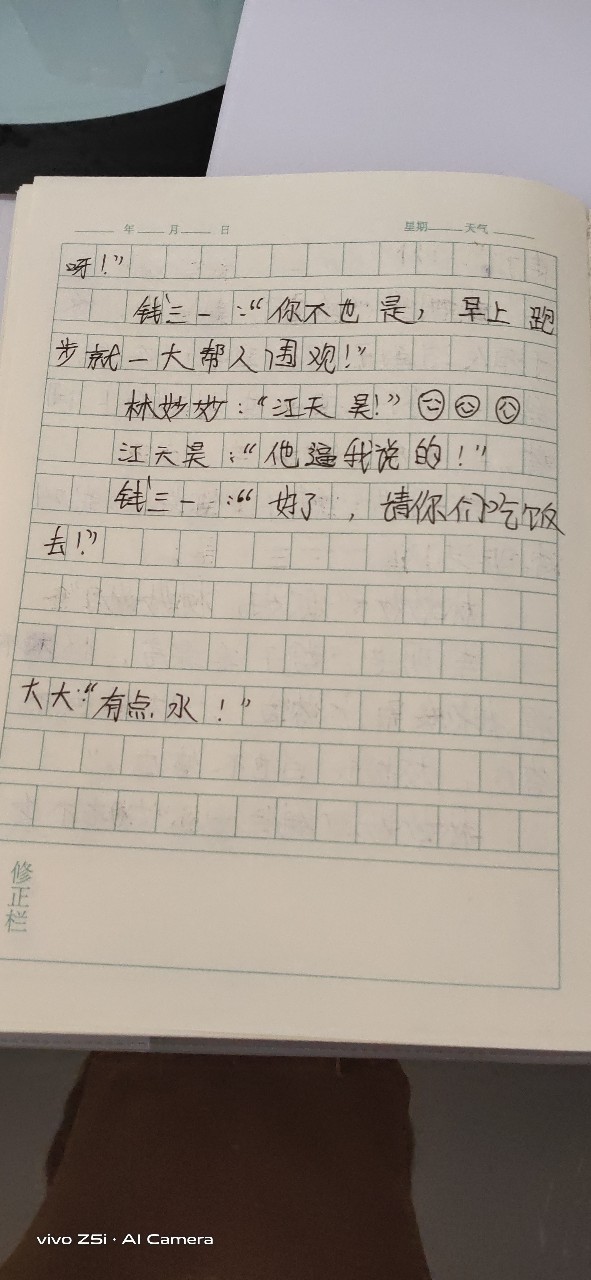 年 月 日 星期 天气
呀！”
钱三一：“你不也是，早上跑
步就一大帮人围观！”
林妙妙：“江天昊！”
江天昊：“他逼我说的！”
钱三一：“好了，请你们吃饭
去！”
大大：“有点水！”
修正栏
vivo Z5i · AI Camera